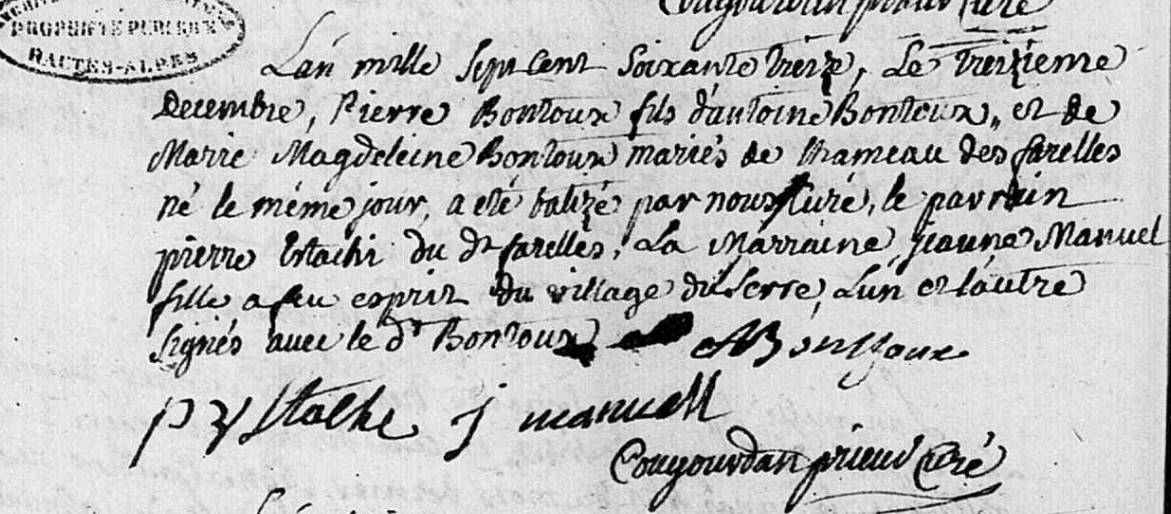 Cougourdan prieur Curé
PROPRIÉTÉ PUBLIQUE
HAUTES-ALPES
L'an mille Sept Cent Soixante treize, Le treizieme
Decembre, Pierre Bontoux fils d'antoine Bontoux, et de
Marie Magdeleine Bontoux mariés de lhameau des farelles
né le méme jour, a eté batizé par nous Curé, le parrain
pierre Estachi du dt farelles, La Marraine jeanne Manuel
fille a feu esprit du village du Serre, Lun et lautre
signés avec le dt Bontoux A Bontoux
p ystathe j manuell
Cougourdan prieur Curé